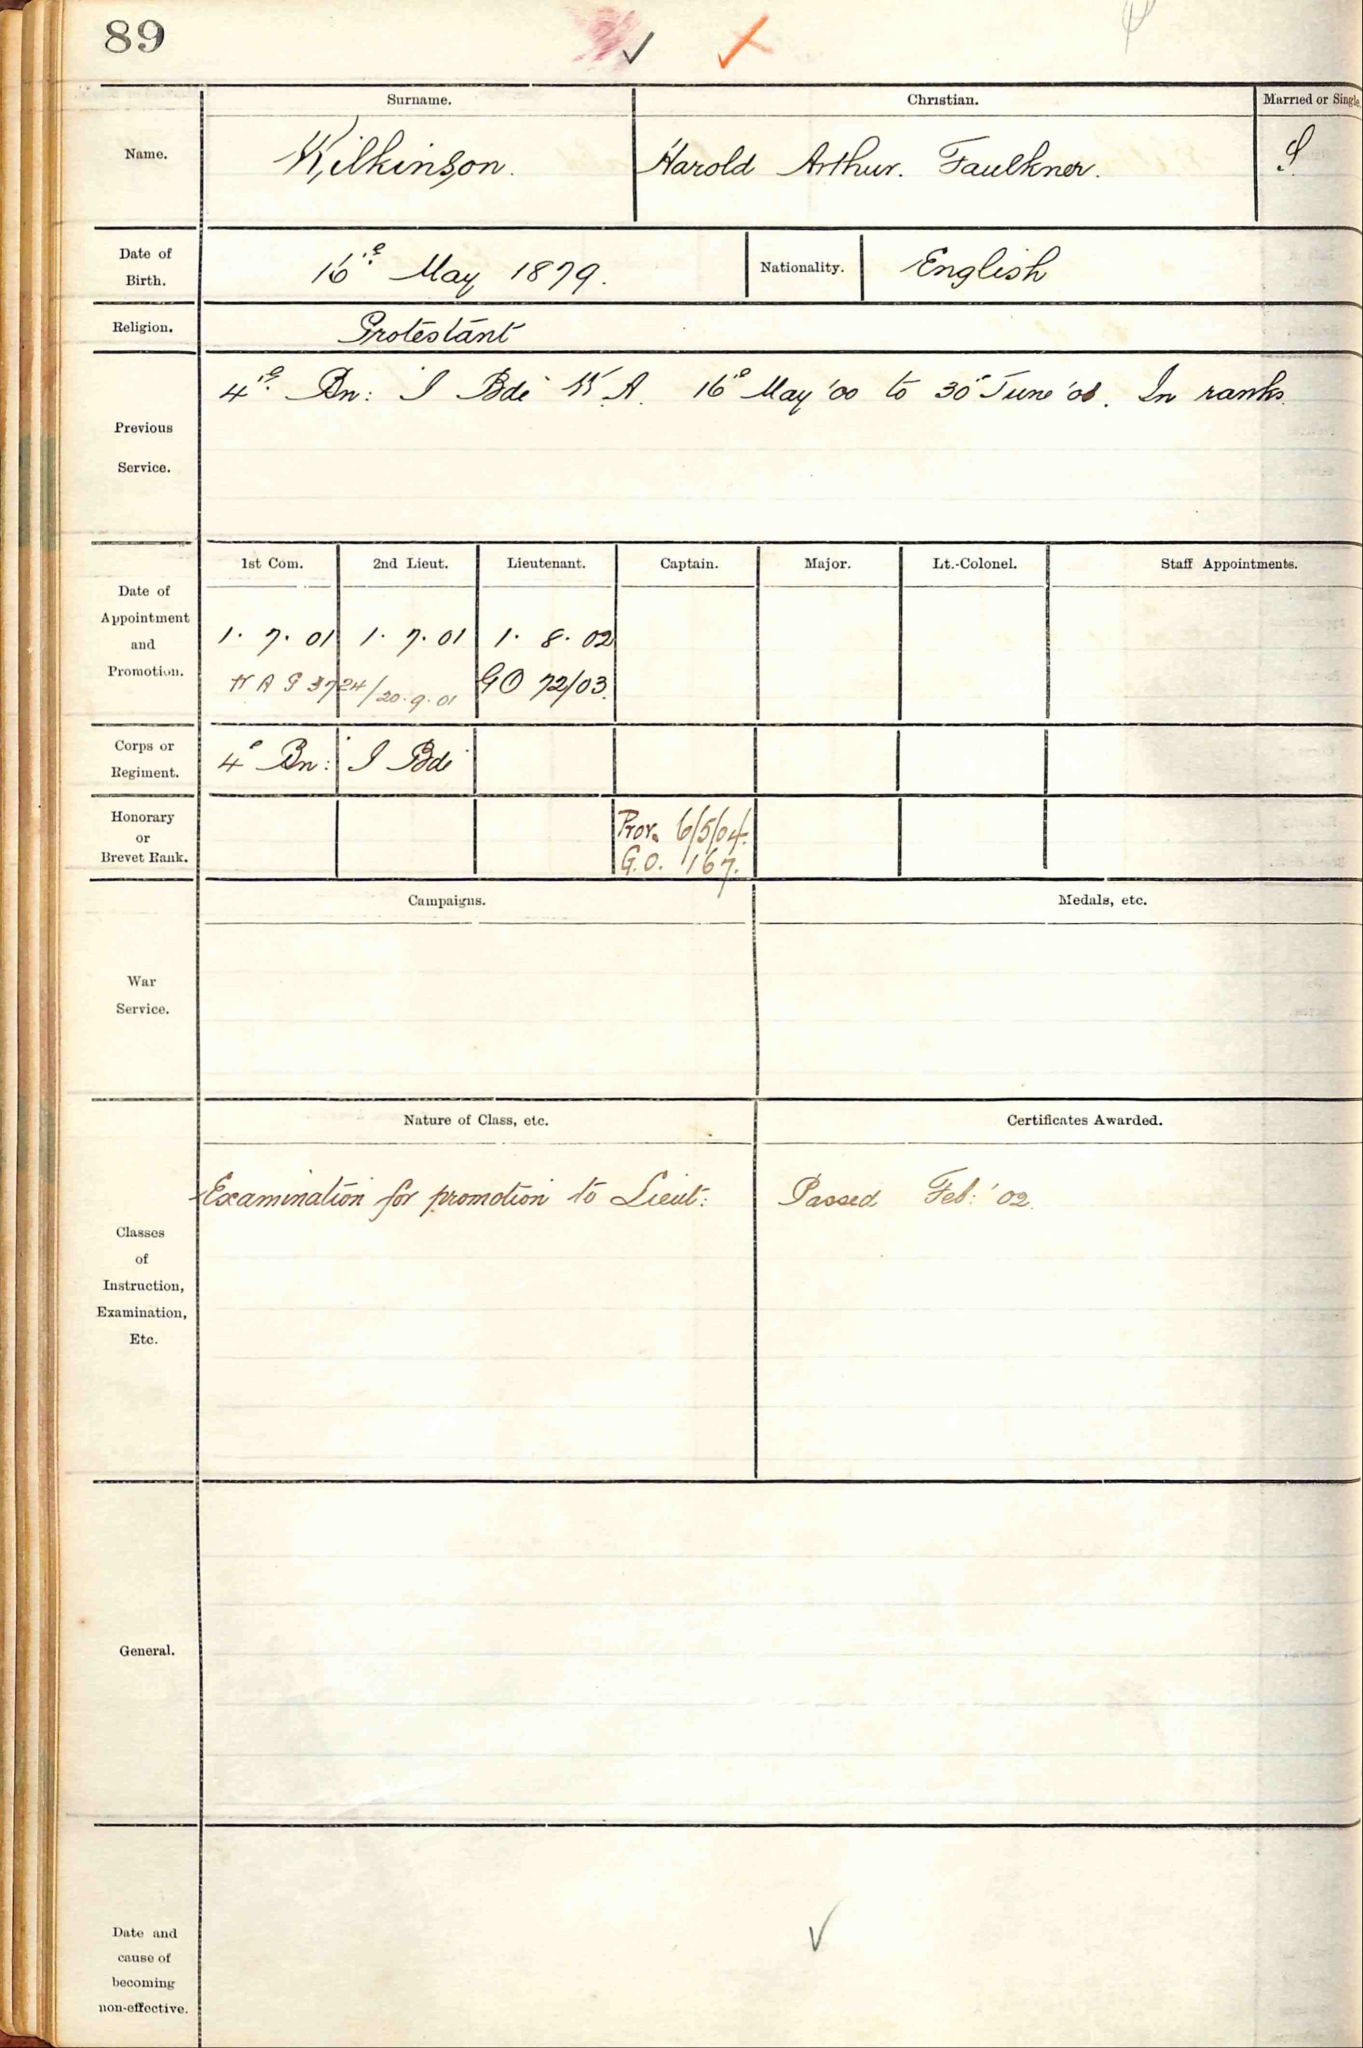 89
Surname. Christian. Married or Single
Name. Wilkinson. Harold Arthur. Faulkner. S.
Date of Birth. 16e May 1879. Nationality. English
Religion. Protestant
4e Bn: I Bde W A. 16e May '00 to 30e June '01. In ranks.
Previous
Service.
1st Com. 2nd Lieut. Lieutenant. Captain. Major. Lt.-Colonel. Staff Appointments.
Date of
Appointment
and
Promotion.
1. 7. 01 1. 7. 01 1. 8. 02
3724/20.9.01 GO 72/03.
Corps or
Regiment.
4e Bn: I Bde
Honorary
or
Brevet Rank.
Prov. 6/5/04.
G.O. 167.
Campaigns. Medals, etc.
War
Service.
Nature of Class, etc. Certificates Awarded.
Examination for promotion to Lieut: Passed Feb: '02.
Classes
of
Instruction,
Examination,
Etc.
General.
Date and
cause of
becoming
non-effective.